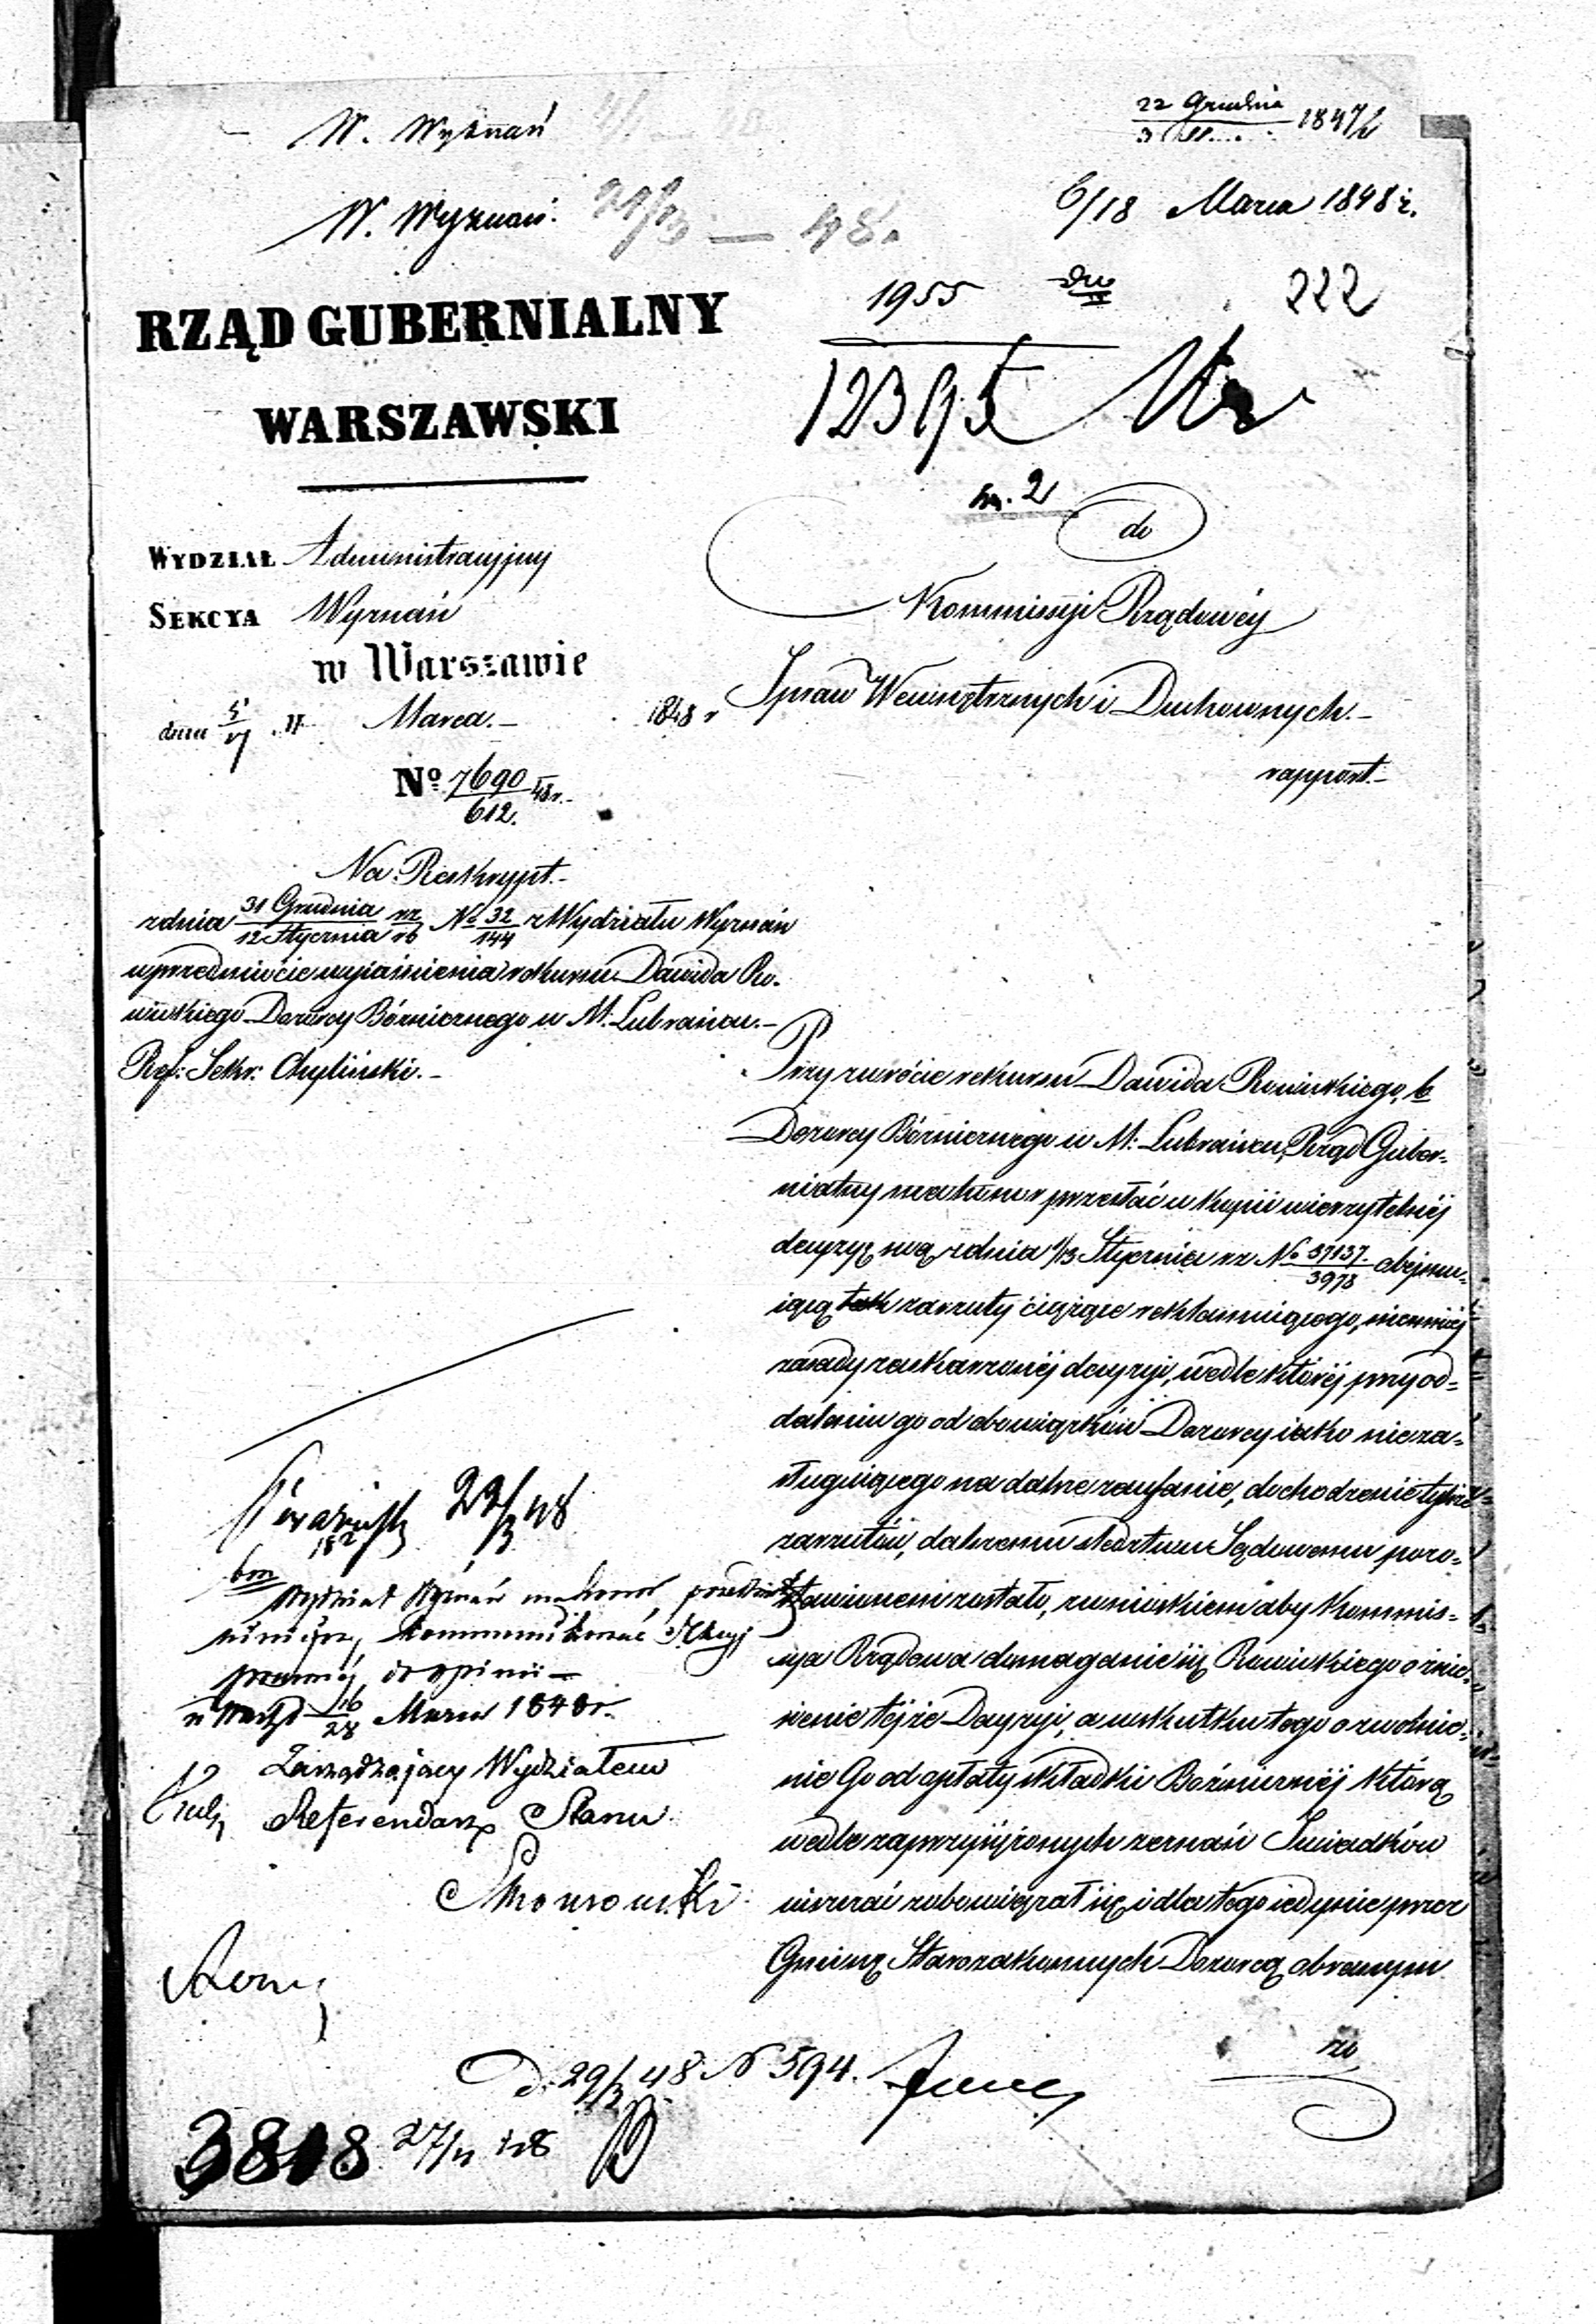 W. Wyznań
22 Grudnia
3 1847/8
W. Wyznań. 21/3 — 48.
6/18 Marca 1848 r.
1955
222
12395
RZĄD GUBERNIALNY
WARSZAWSKI
do
WYDZIAŁ Administracyjny
SEKCYA Wyznań
w Warszawie
dnia 5/17 Marca.- 1848 r
No 7690/612. 48r.-
Kommissyi Rządowéy
Spraw Wewnętrznych i Duchownych.-
rapport.-
Na Reskrypt.-
z dnia 31 Grudnia/12 Stycznia No 32/144 z Wydziału Wyznań
w przedmiocie wyjaśnienia rekursu Dawida Ro-
wińskiego Dozorcy Bóżnicznego w M. Lubrańcu.-
Ref: Sekr: Chyliński.-
Przy zwrócie rekursu Dawida Rowińskiego, b
Dozorcy Bóżnicznego w M: Lubrańcu, Rząd Guber-
nialny ma honor przesłać w kopii wierzytelnéj
decyzyę swą z dnia 1/13 Stycznia nr No 37137/3978 obejmu-
iącą tak zarzuty ciążące reklamuiącego, niemniéj
zasady zaskarżonéj decyzyi, wedle któréj przy od-
daleniu go od obowiązków Dozorcy iako nieza-
sługuiącego na dalsze zaufanie, dochodzenie tychże
zarzutów, dalszemu śledztwu Sądowemu pozo-
stawionem zostało, z wnioskiem aby Kommis-
sya Rządowa domaganie się Rowińskiego o znie-
sienie téjże Decyzyi, a w skutku tego o zwolnie-
nie Go od opłaty składki Bóżniczéj którą
wedle zaprzysiężonych zeznań Świadków
uiszczać zobowiązał się i dla tego iedynie przez
Gminę Starozakonnych Dozorcą obranym
zo
23/3 48
Wydział Wyznań ma honor
niniejsze, kommunikować Sekcyi
prawnéj do opinii —
16/28 Marca 1848 r.
Zarządzający Wydziałem
Referendarz Stanu
d. 29/3 48 N 594.
3818 27/3 48